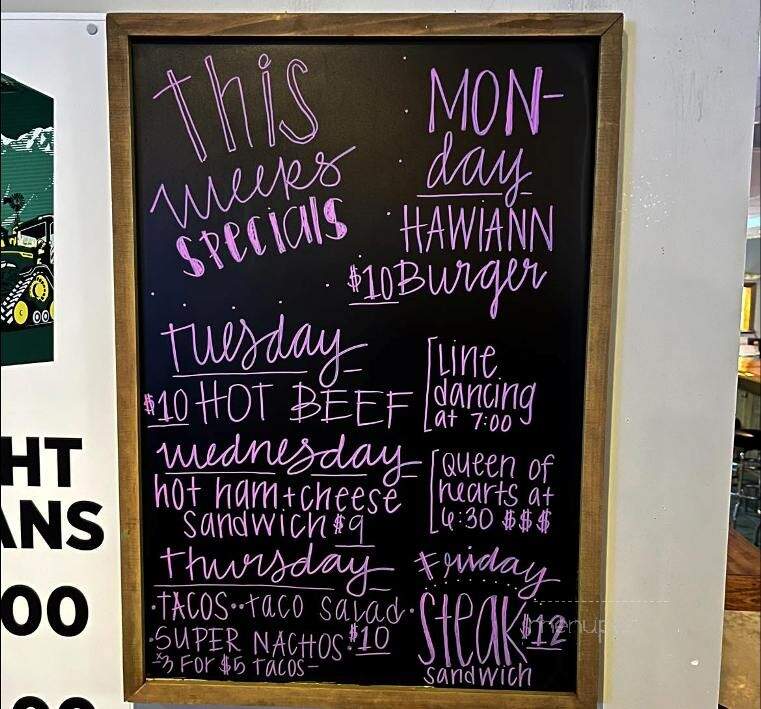 This
weeks
specials
MON-
day
HAWIANN
$10 Burger
Tuesday
$10 HOT BEEF
[Line
dancing
at 7:00
wednesday
hot ham + cheese
sandwich $9
[Queen of
hearts at
6:30 $$$
Thursday
·TACOS··taco salad·
·SUPER NACHOS $10
*3 FOR $5 tacos-
Friday
Steak $12
sandwich
HT
ANS
00
00